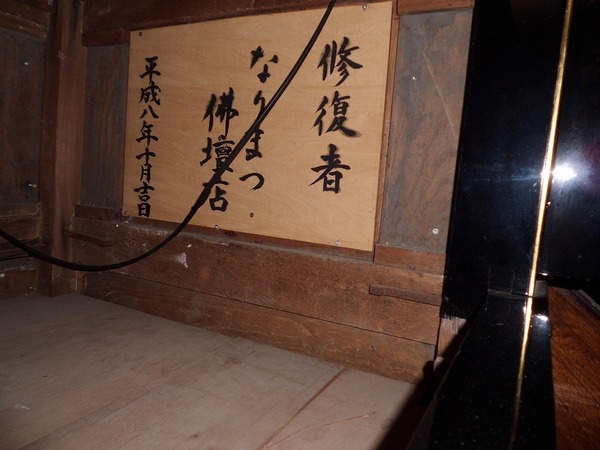 修復者
なりまつ
佛壇店
平成八年十月吉日